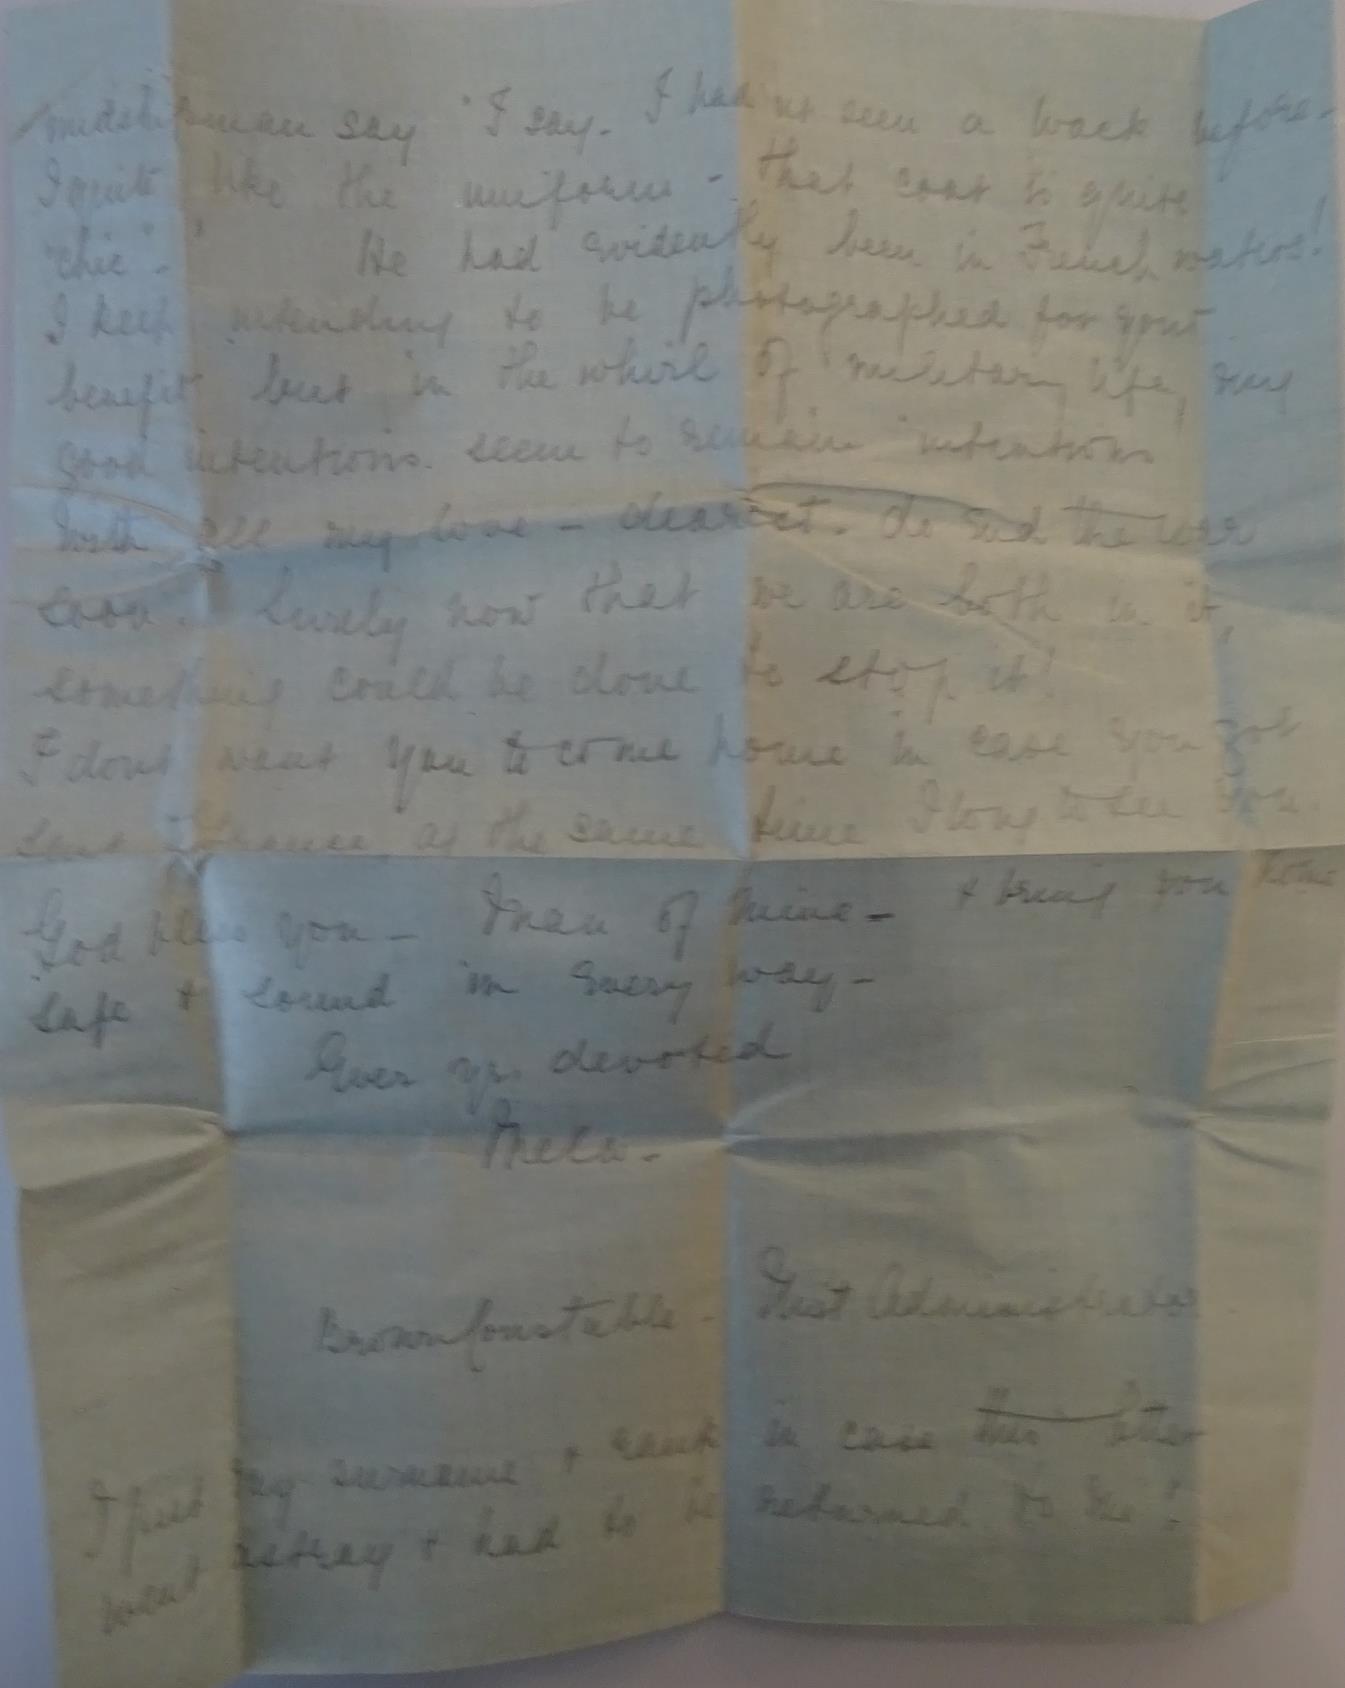 midshipman say "I say. I had nt seen a Waac before -
I quite like the uniform - that coat is quite
'chic'." He had evidently been in French waters!
I keep intending to be photographed for your
benefit but in the whirl of military life, my
good intentions seem to remain intentions
With all my love - dearest. do end the war
soon. Surely now that we are both in it,
something could be done to stop it!
I dont want you to come home in case you got
sent France, at the same time I long to see you.
God bless you - man of mine - & bring you home
safe & sound in every way -
Ever yr. devoted
Brown Constable - Administrator
I put my surname & rank in case this letter
went astray & had to be returned to me!